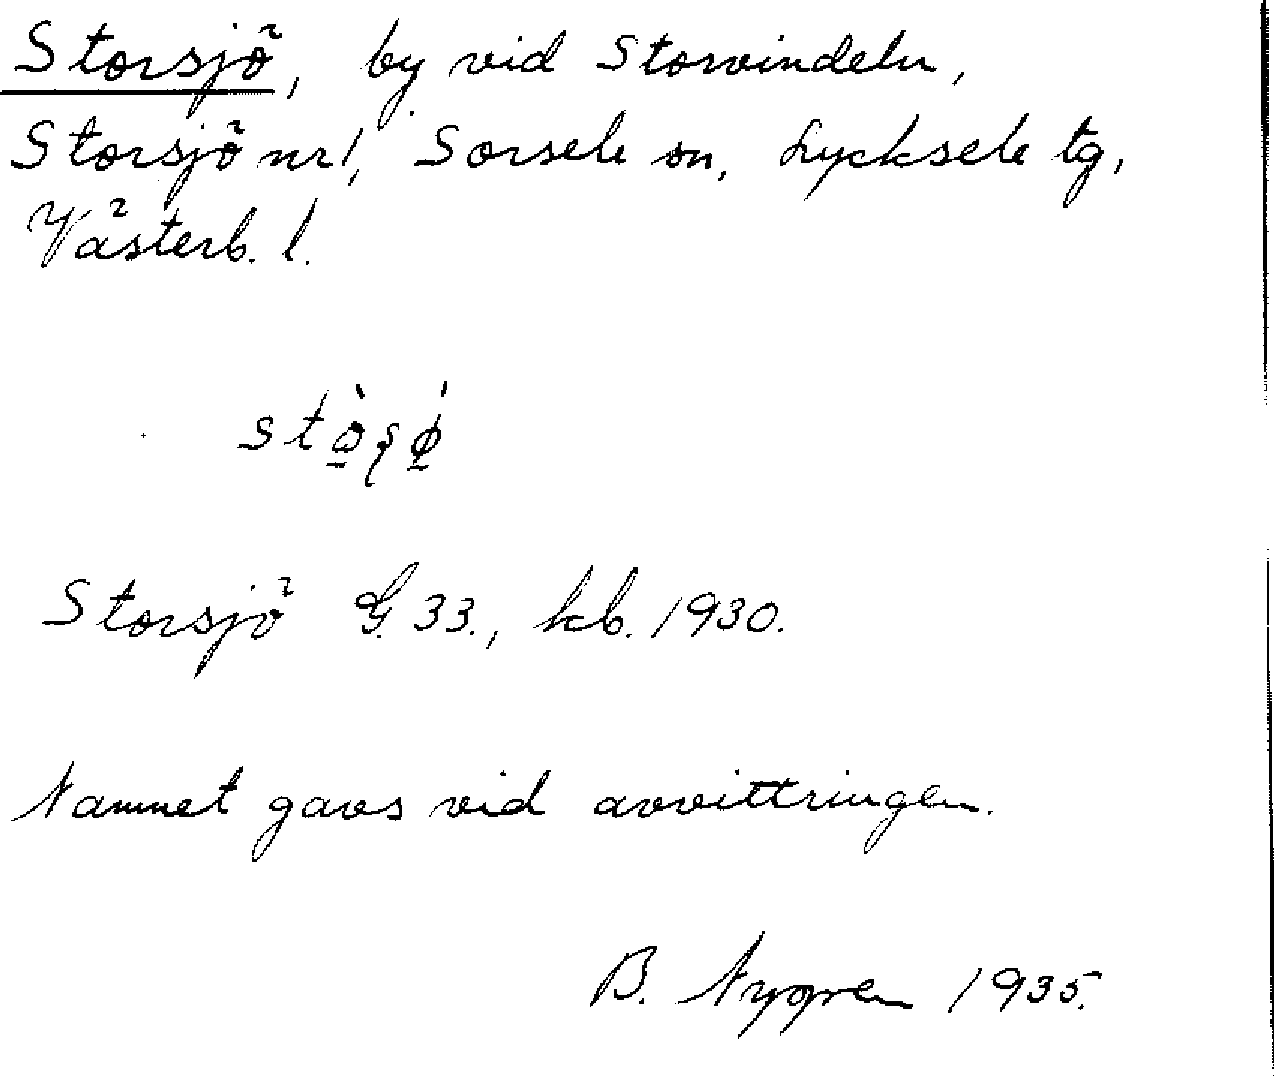 Storsjö, by vid Storvindeln,
Storsjö nr 1, Sorsele sn, Lycksele tg,
Västerb. l.
Storsjö G. 33., kb. 1930.
Namnet gavs vid avvittringen.
B. Nygren 1935.